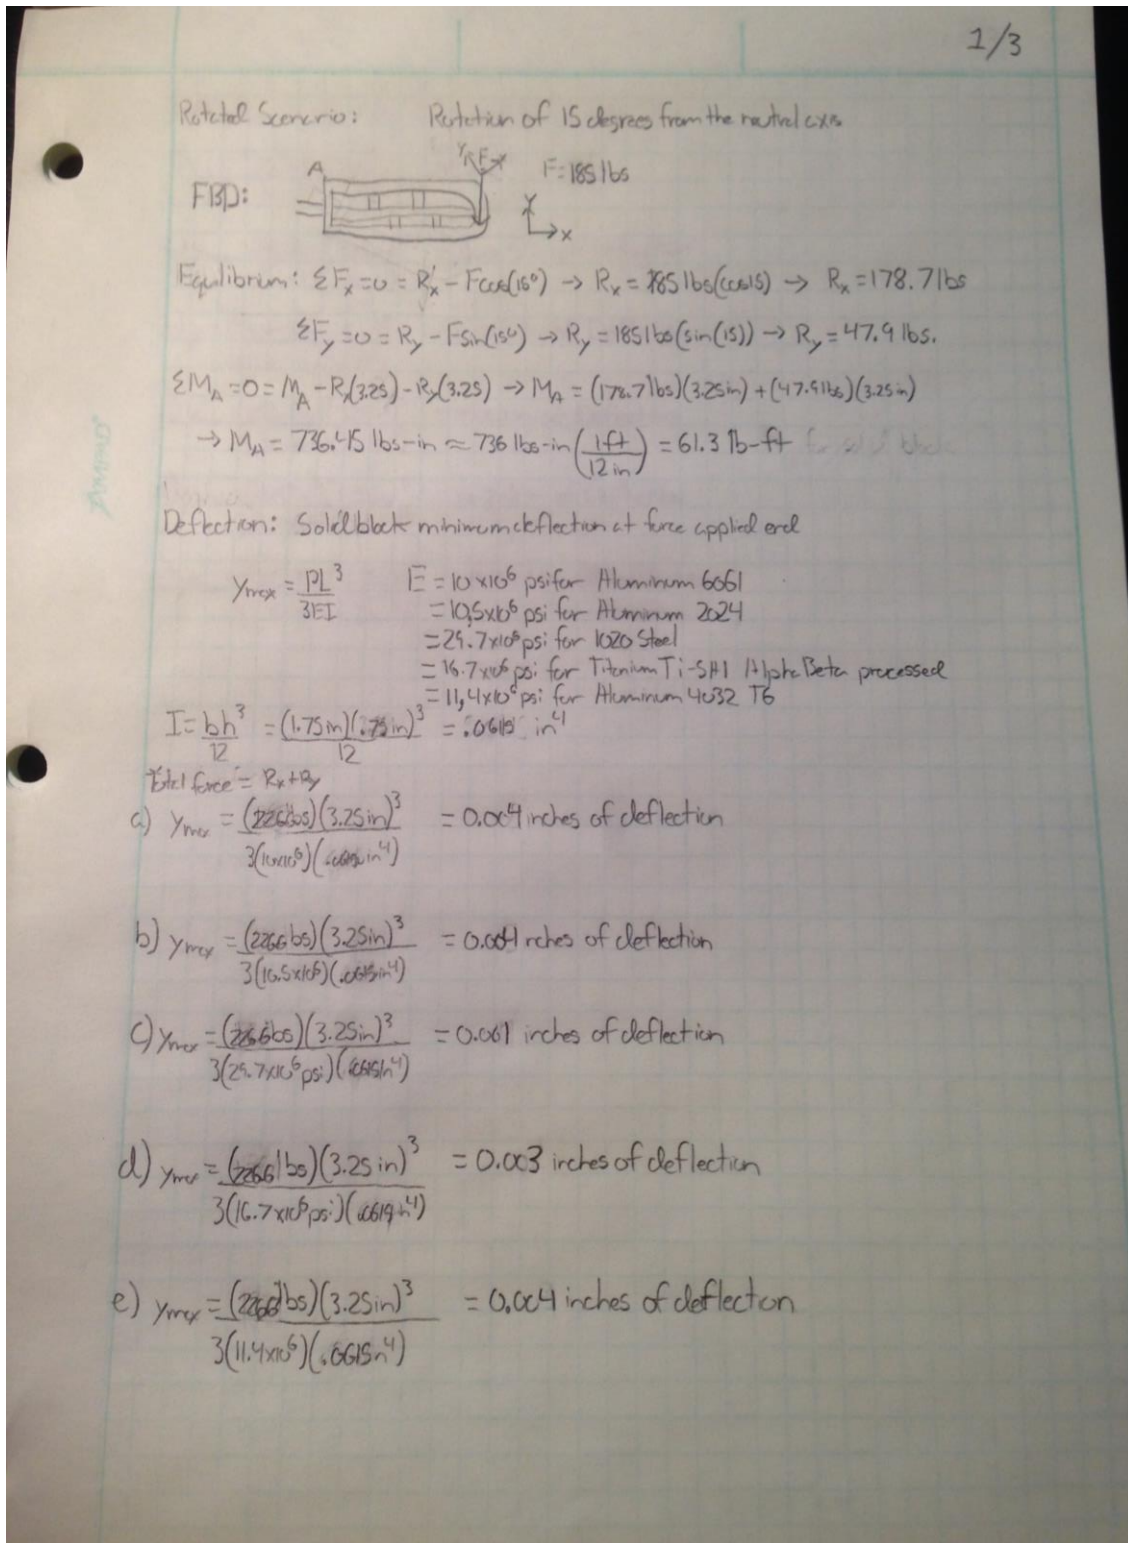 1/3
Rotated Scenario: Rotation of 15 degrees from the neutral axis
FBD: A Y F X F=185 lbs
Y
X
Equilibrium: ΣFx=0 = Rx - Fcos(15°) → Rx = 185 lbs(cos15) → Rx = 178.7 lbs
ΣFy=0 = Ry - Fsin(15°) → Ry = 185 lbs(sin(15)) → Ry = 47.9 lbs.
ΣMA=0 = MA - Rx(3.25) - Ry(3.25) → MA = (178.7 lbs)(3.25in) + (47.9 lbs)(3.25in)
→ MA = 736.45 lbs-in ≈ 736 lbs-in (1ft/12in) = 61.3 lb-ft
Deflection: Solid block minimum deflection at force applied end
ymax = PL³/3EI E = 10×10⁶ psi for Aluminum 6061
= 10,5×10⁶ psi for Aluminum 2024
= 29.7×10⁶ psi for 1020 Steel
= 16.7×10⁶ psi for Titanium Ti-5Al Alpha Beta processed
= 11,4×10⁶ psi for Aluminum 4032 T6
I = bh³/12 = (1.75in)(.75in)³/12 = .0615 in⁴
Total force = Rx+Ry
a) ymax = (226.6lbs)(3.25in)³/3(10×10⁶)(.0615in⁴) = 0.004 inches of deflection
b) ymax = (226.6lbs)(3.25in)³/3(10.5×10⁶)(.0615in⁴) = 0.004 inches of deflection
c) ymax = (226.6lbs)(3.25in)³/3(29.7×10⁶ psi)(.0615in⁴) = 0.001 inches of deflection
d) ymax = (226.6lbs)(3.25in)³/3(16.7×10⁶ psi)(.0615in⁴) = 0.003 inches of deflection
e) ymax = (226.6lbs)(3.25in)³/3(11.4×10⁶)(.0615in⁴) = 0.004 inches of deflection